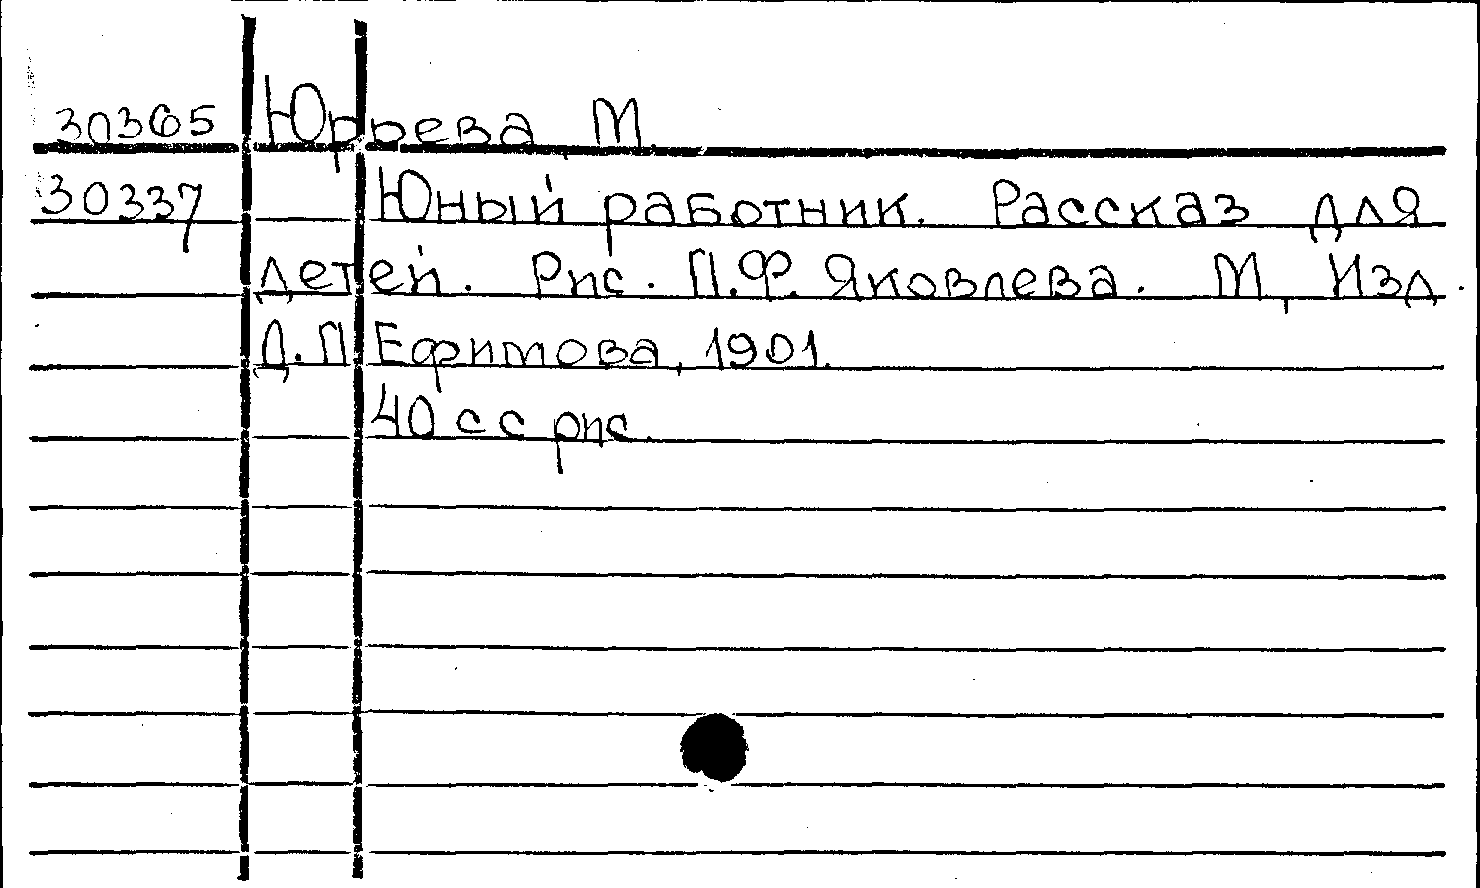 30365 Юрьева, М.
30337 Юный работник. Рассказ для
детей. Рис. П.Ф. Яковлева. М, Изд.
Д. П Ефимова, 1901.
40 с с рис.